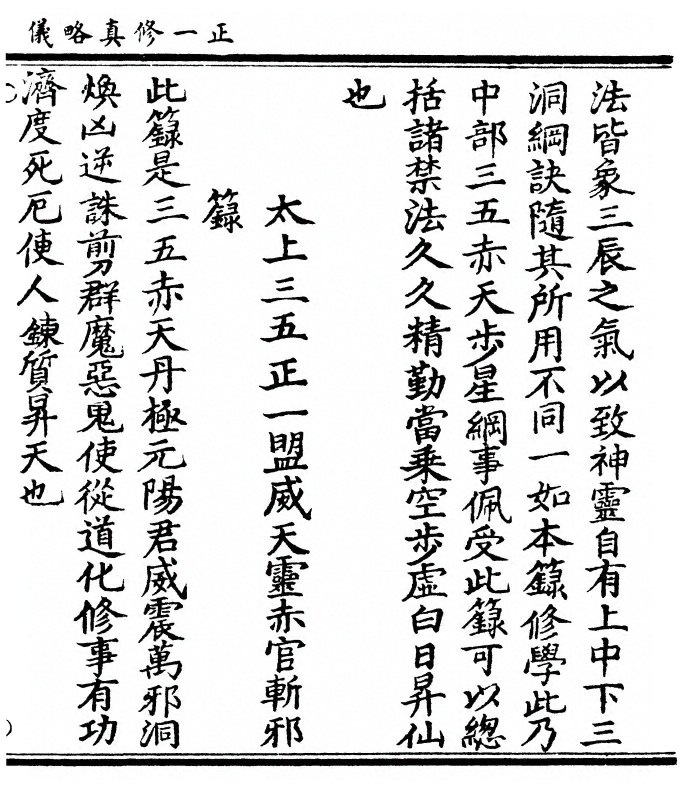 正一修真略儀
法皆象三辰之氣以致神靈自有上中下三
洞綱訣隨其所用不同一如本籙修學此乃
中部三五赤天步星綱事佩受此籙可以總
括諸禁法久久精勤當乗空步虛白日昇仙
也
太上三五正一盟威天靈赤官斬邪
籙
此籙是三五赤天丹極元陽君威震萬邪洞
煥凶逆誅剪群魔惡鬼使從道化修事有功
濟度死厄使人鍊質昇天也